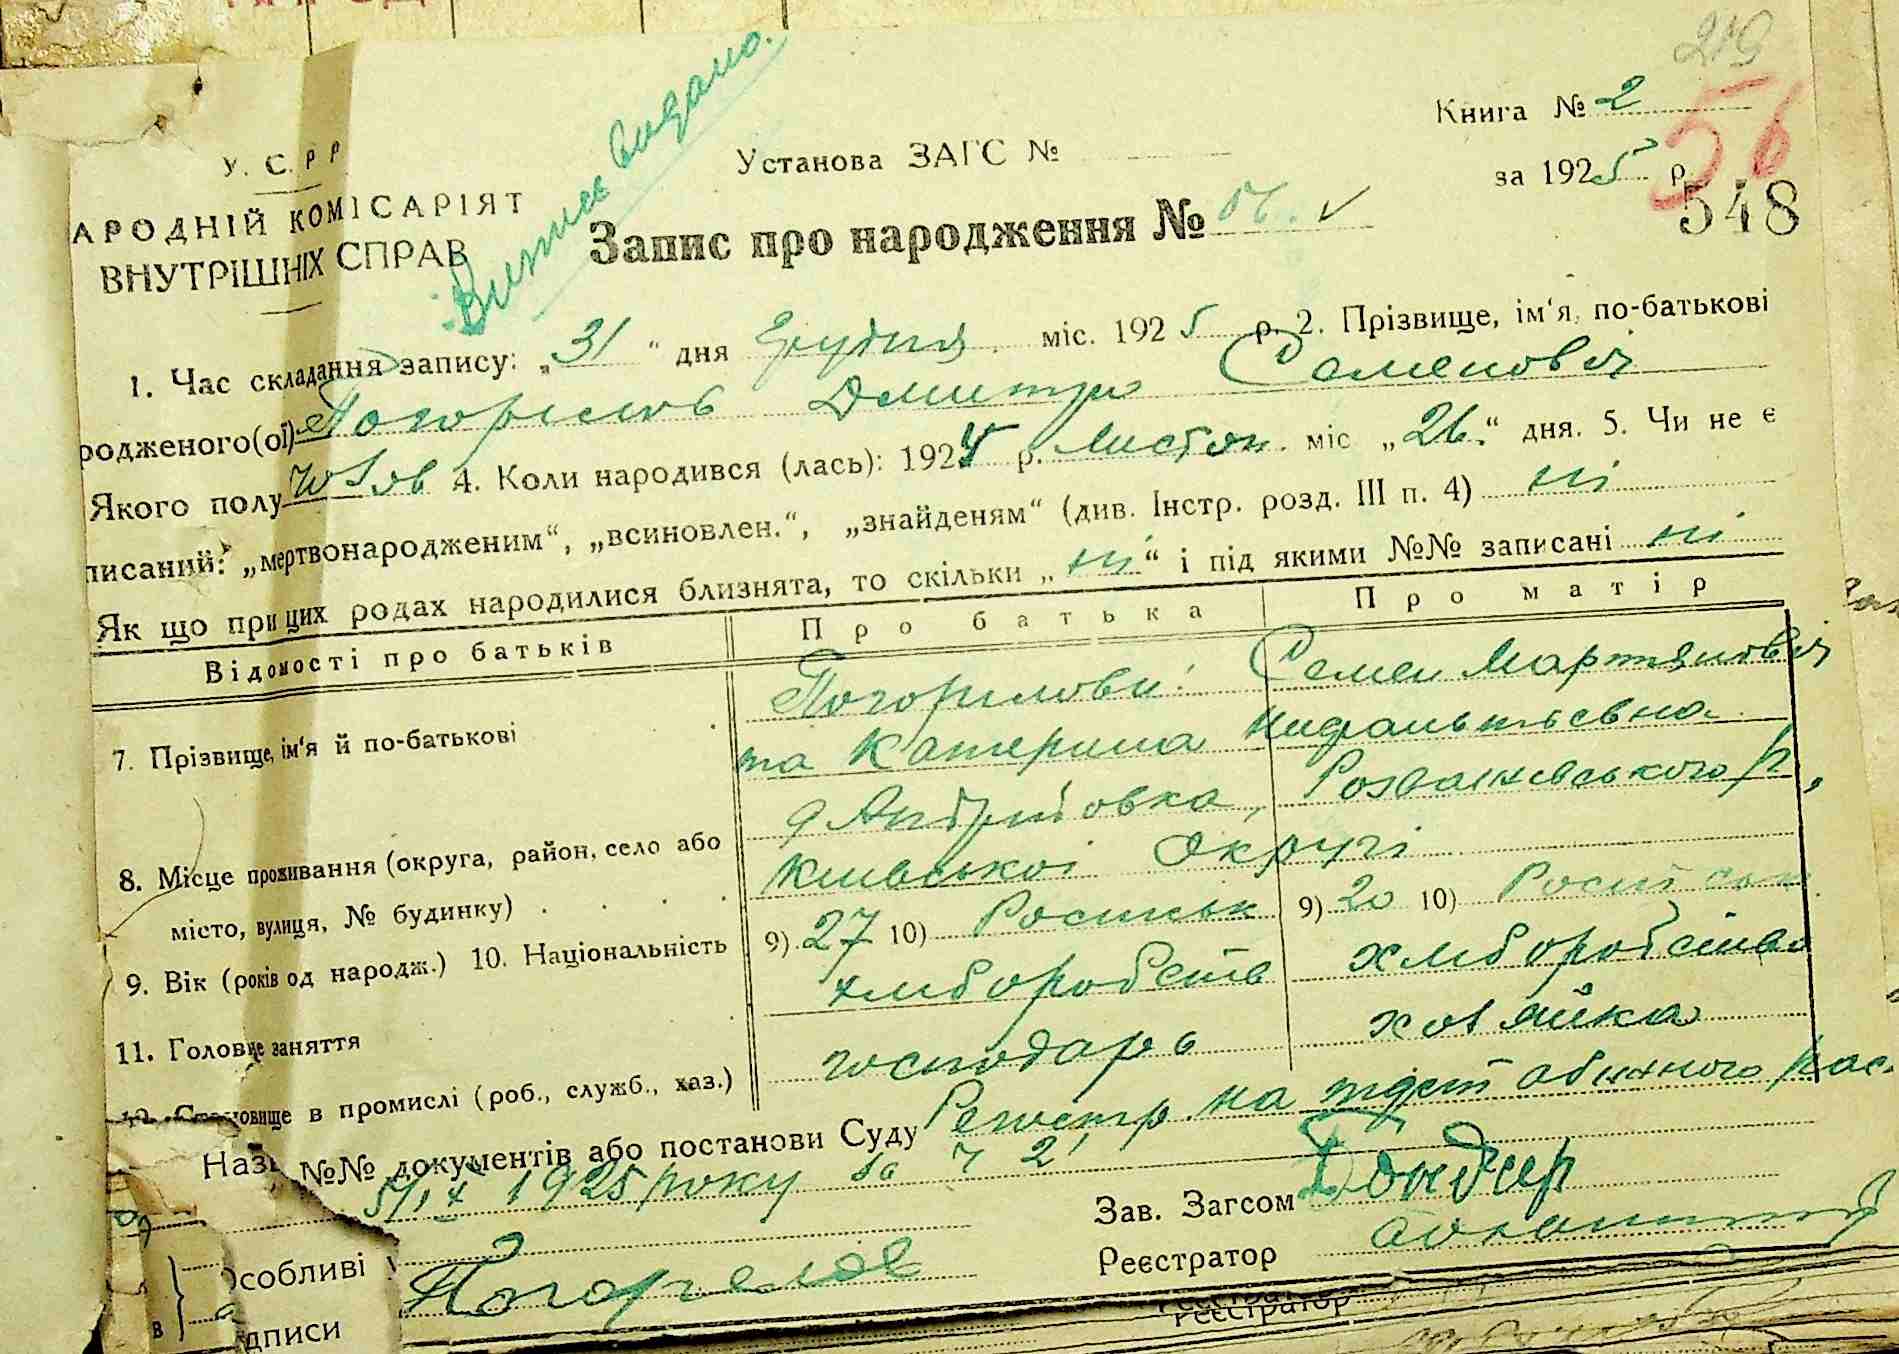 219
Книга № 2
56
У. С. Р Р
Випис видано.
Установа ЗАГС №
за 1925 р
АРОДНІЙ КОМІСАРІЯТ
ВНУТРІШНІХ СПРАВ
Запис про народження № 56. ✓
548
1. Час складання запису: „31“ дня Грудня міс. 1925 р. 2. Прізвище, ім‘я, по-батькові
родженого(ої) Погорілов Дмитро Семенович
Якого полу 4. Коли народився (лась): 1924 р. Листоп. міс „26.“ дня. 5. Чи не є
писаний: „мертвонародженим“, „всиновлен.“, „знайденям“ (див. Інстр. розд. III п. 4) ні
Як що при цих родах народилися близнята, то скільки „ні“ і під якими №№ записані ні
Відомості про батьків Про батька Про матір
7. Прізвище, ім‘я й по-батькові Погорілови: Семен Мартянович
та Катерина
8. Місце проживання (округа, район, село або Андріївка, Розважевського р.,
місто, вулиця, № будинку) Київської округі
9. Вік (років од народж.) 10. Національність 9) 27 10) Росийськ 9) 20 10)
11. Головне заняття хліборобств хліборобство
12. Становище в промислі (роб., служб., хаз.) господарь хозяйка
Назв №№ документів або постанови Суду Регистр. на
1925 року за ч 2
Зав. Загсом Бондар
Реєстратор
Особливі Погорелов
дписи
Реєстратор